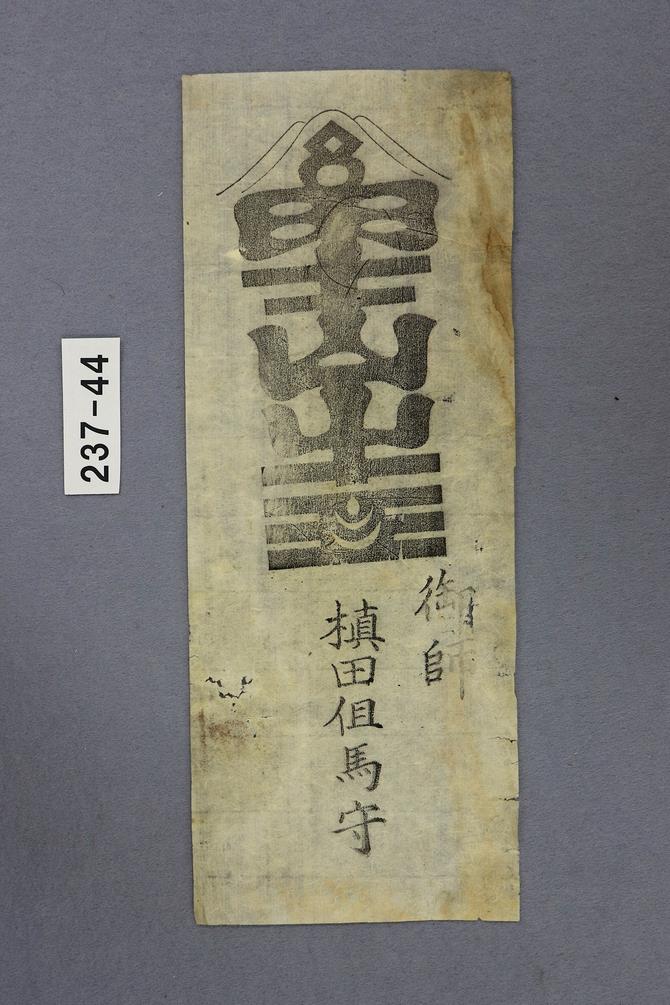 237-44
御師
槙田但馬守